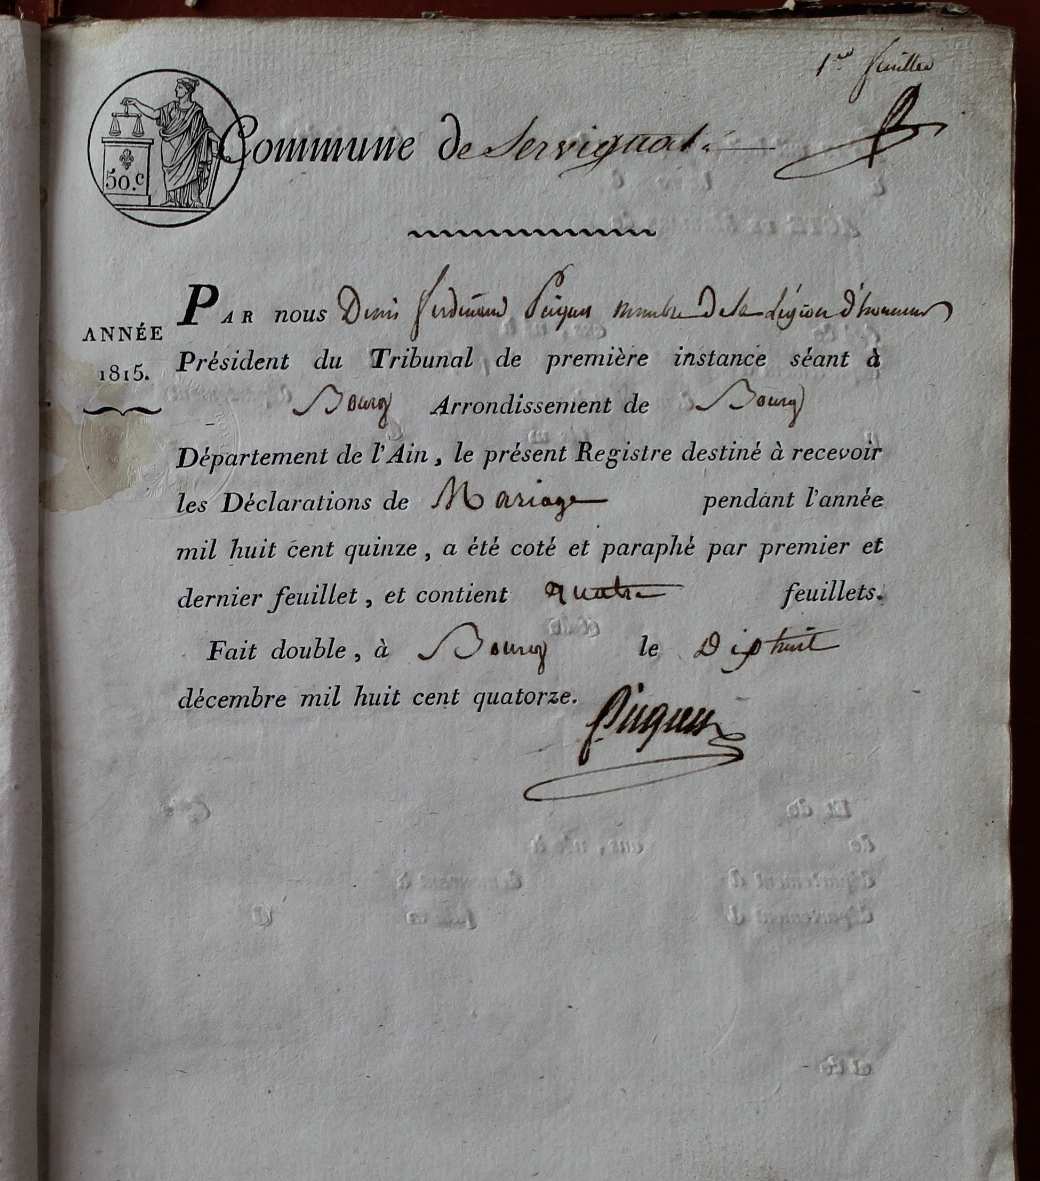 1er feuillet
50.c
Commune de Servignat.
PAR nous Denis ferdinand membre de la Légion d'honneur
ANNÉE
1815.
Président du Tribunal de première instance séant à
Bourg Arrondissement de Bourg
Département de l'Ain, le présent Registre destiné à recevoir
les Déclarations de Mariage pendant l'année
mil huit cent quinze, a été coté et paraphé par premier et
dernier feuillet, et contient quatre feuillets.
Fait double, à Bourg le Dixhuit
décembre mil huit cent quatorze.